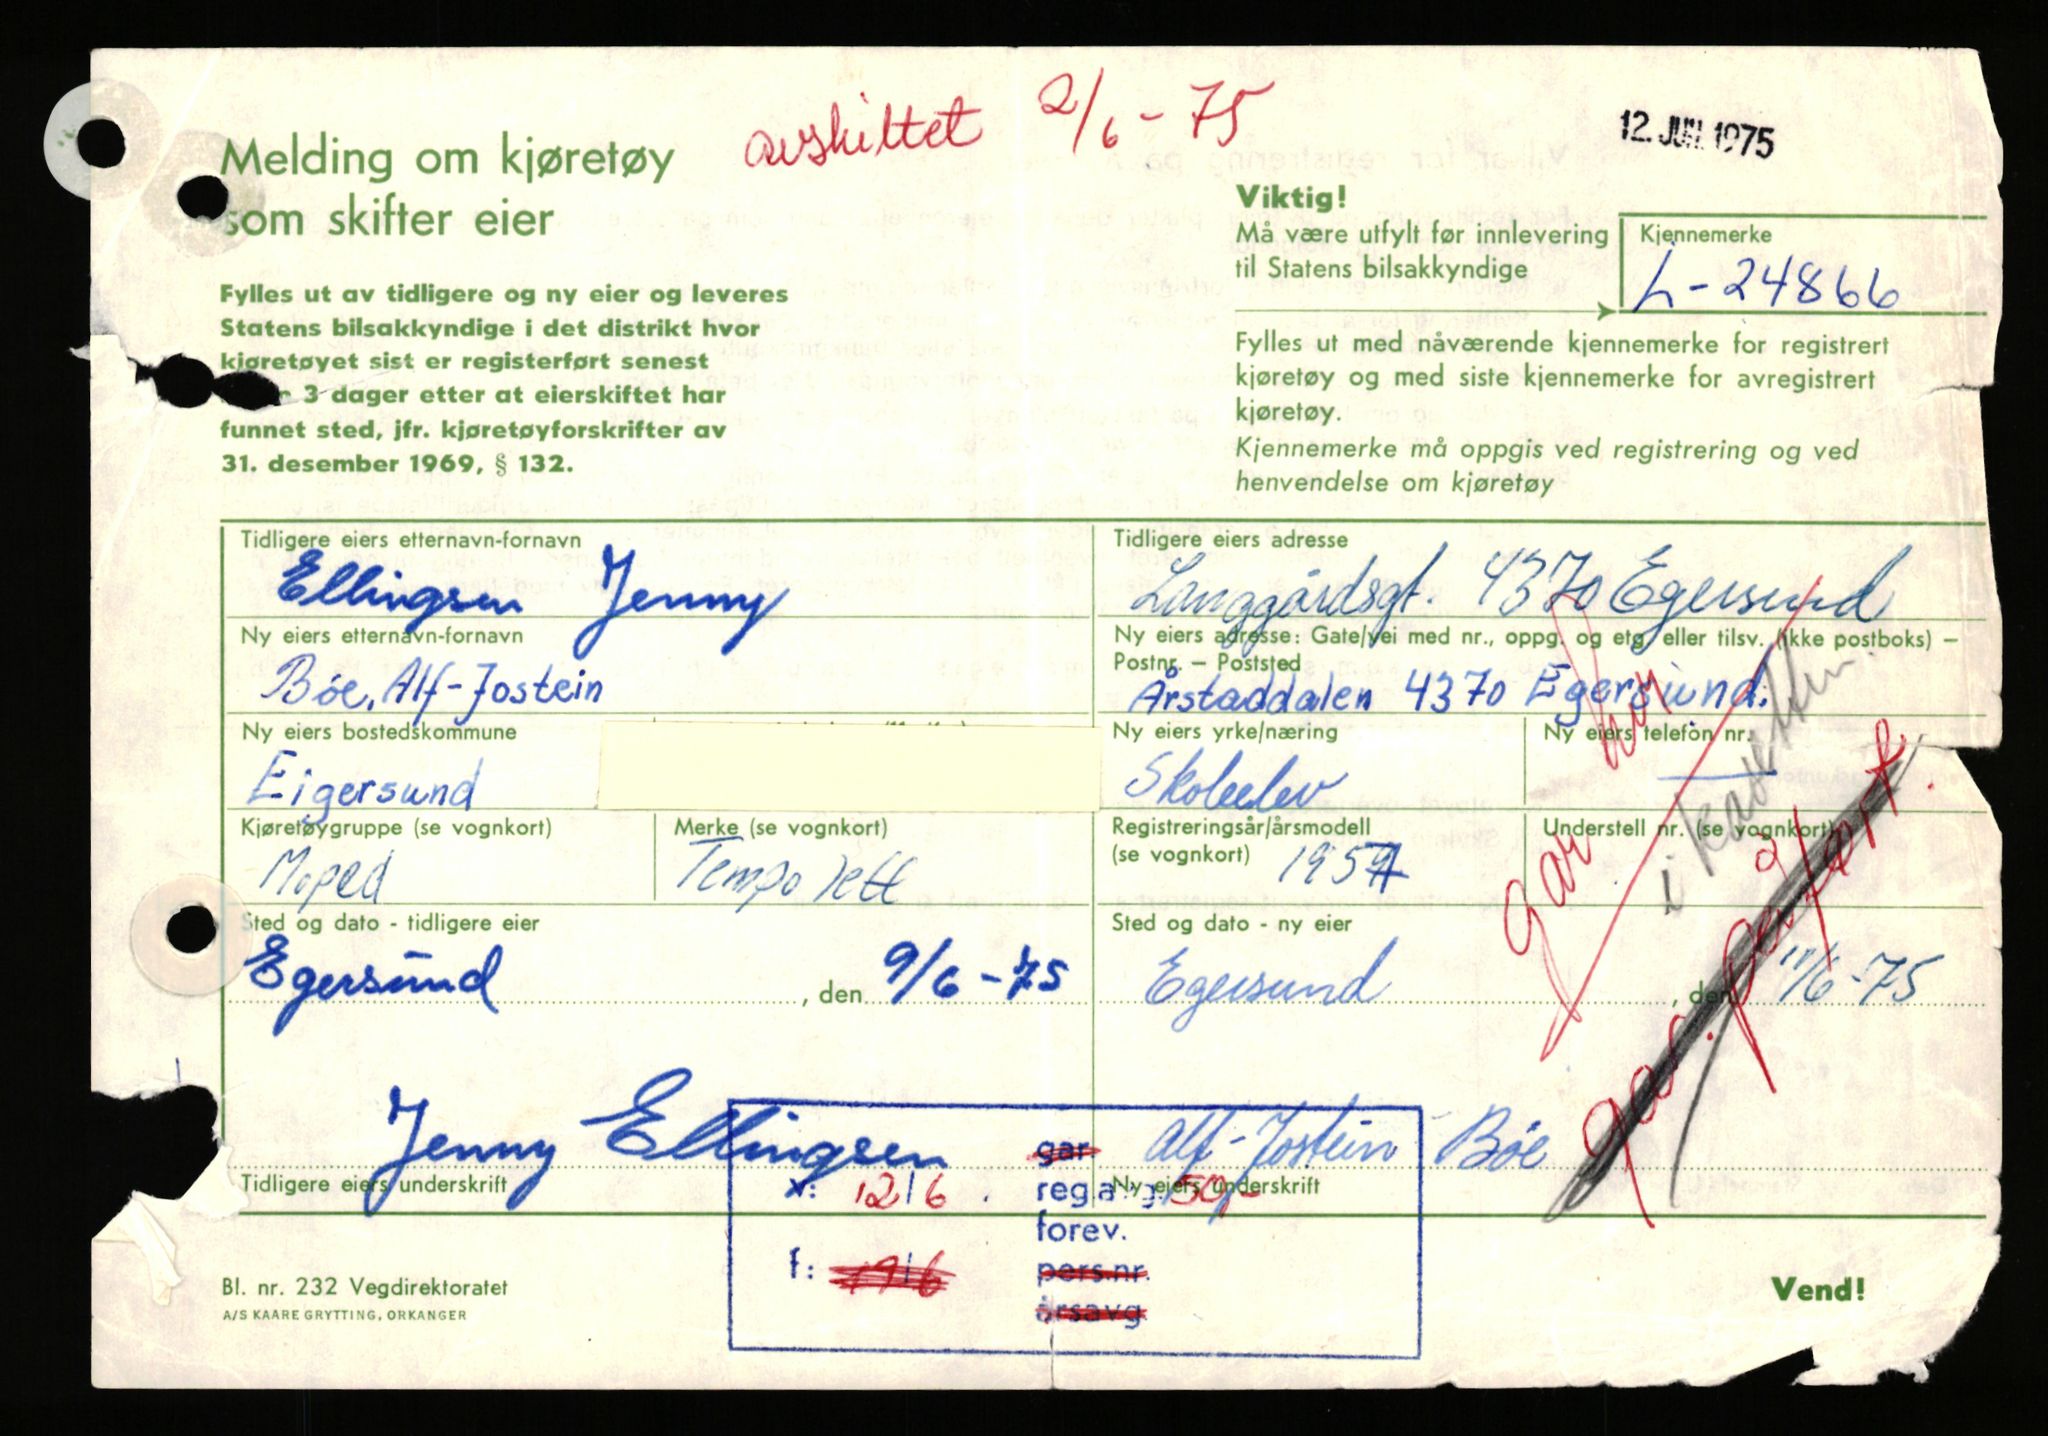 avskiltet 2/6 - 75
12. JUN. 1975
Melding om kjøretøy
som skifter eier
Viktig!
Må være utfylt før innlevering
til Statens bilsakkyndige
Kjennemerke
L-24866
Fylles ut av tidligere og ny eier og leveres
Statens bilsakkyndige i det distrikt hvor
kjøretøyet sist er registerført senest
3 dager etter at eierskiftet har
funnet sted, jfr. kjøretøyforskrifter av
31. desember 1969, § 132.
Fylles ut med nåværende kjennemerke for registrert
kjøretøy og med siste kjennemerke for avregistrert
kjøretøy.
Kjennemerke må oppgis ved registrering og ved
henvendelse om kjøretøy
Tidligere eiers etternavn-fornavn
Ellingsen Jenny
Tidligere eiers adresse
Langgårdsgt. 4370 Egersund
Ny eiers etternavn-fornavn
Bøe, Alf-Jostein
Ny eiers adresse: Gate/vei med nr., oppg. og etg. eller tilsv. (ikke postboks) –
Postnr. – Poststed
Årstaddalen 4370 Egersund.
Ny eiers bostedskommune
Eigersund
Ny eiers yrke/næring
Skoleelev
Ny eiers telefon nr.
Kjøretøygruppe (se vognkort)
Moped
Merke (se vognkort)
Tempo lett
Registreringsår/årsmodell
(se vognkort) 1957
Understell nr. (se vognkort)
gar
i
gar.
Sted og dato - tidligere eier
Egersund, den 9/6 - 75
Sted og dato - ny eier
Egersund, den 11/6 - 75
Jenny Ellingsen
Tidligere eiers underskrift
Alf-Jostein Bøe
Ny eiers underskrift
gar.
v: 12/6. reg.avg. 50,-
forev.
f: 19/6 pers.nr.
årsavg.
Bl. nr. 232 Vegdirektoratet
A/S KAARE GRYTTING, ORKANGER
Vend!